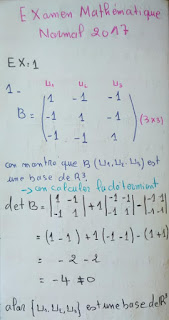 Examen Mathématique
Normal 2017
EX:1
u₁ u₂ u₃
1 -
1 -1 -1
B = -1 1 -1 (3x3)
-1 -1 1
on montre que B (u₁, u₂, u₃) est
une base de R³.
→ on calcules la determinant
det B = |1 -1; -1 1| + 1 |-1 -1; -1 1| - |-1 1; -1 -1|
= (1 - 1) + 1(-1 - 1) - (1 + 1)
= - 2 - 2
= - 4 ≠ 0
alors {u₁, u₂, u₃} est une base de R³